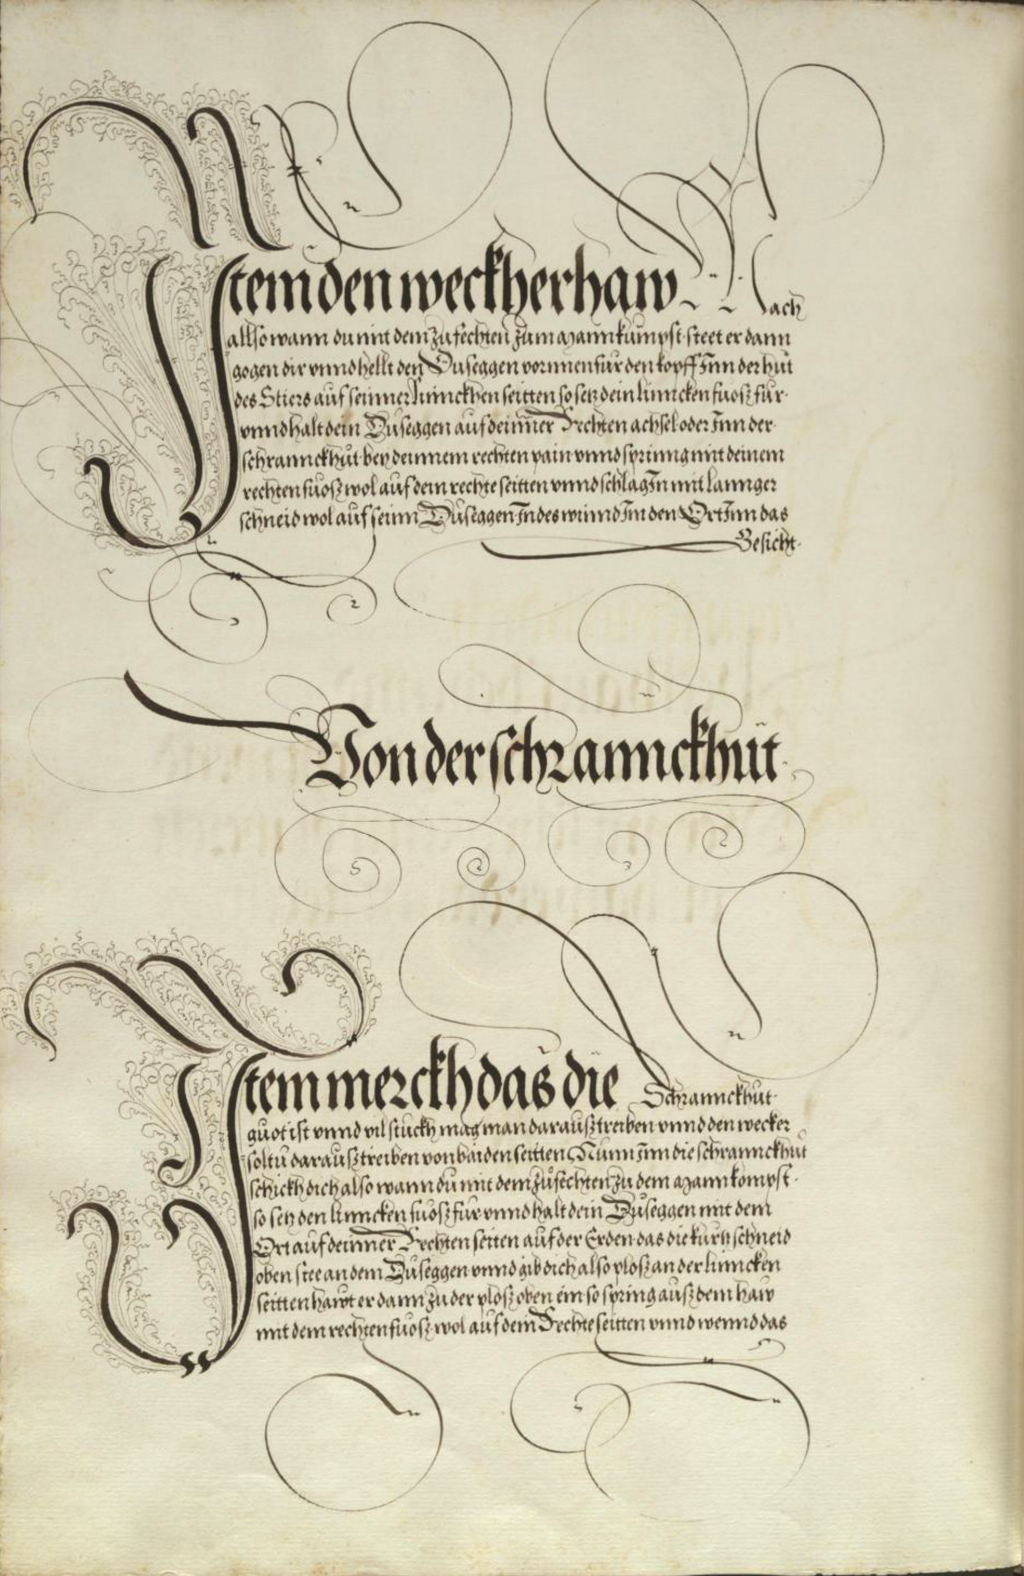 Item den weckherhaw Mach
allso wann du mit dem zufechten zum Mann kumpst steet er dann
gogen dir vnnd hellt den Duseggen vornnen für den kopff Inn der hůt
des Stiers auf seinner linnckhen seitten so setz dein linncken fuosz für
vnnd halt dein Duseggen auf deinner Rechten achsel oder Inn der
schrannckhůt bey deinnem rechten pain vnnd sprinng mit deinem
rechten fuosz wol auf dein rechte seitten vnnd schlag In mit lannger
schneid wol auf seinn Duseggen Indes winnd Im den Ort Inn das
Gesicht
Von der schranckhůt
Item merckh das die Schranckhůt
guot ist vnnd vil stuckh mag man darausz treiben vnnd den wecker
soltu darausz treiben von baiden seitten Nunn Inn die schranckhůt
schickh dich also wann du mit dem zufechten zu dem Mann kompst
so setz den linncken fuosz für vnnd halt dein Duseggen mit dem
Ort auf deinner Rechten seiten auf der Erden das die kurtz schneid
oben stee an dem Duseggen vnnd gib dich also plosz an der linncken
seitten hawt er dann zu der plosz oben ein so spring ausz dem haw
mit dem rechten fuosz wol auf dein Rechte seitten vnnd wennd das